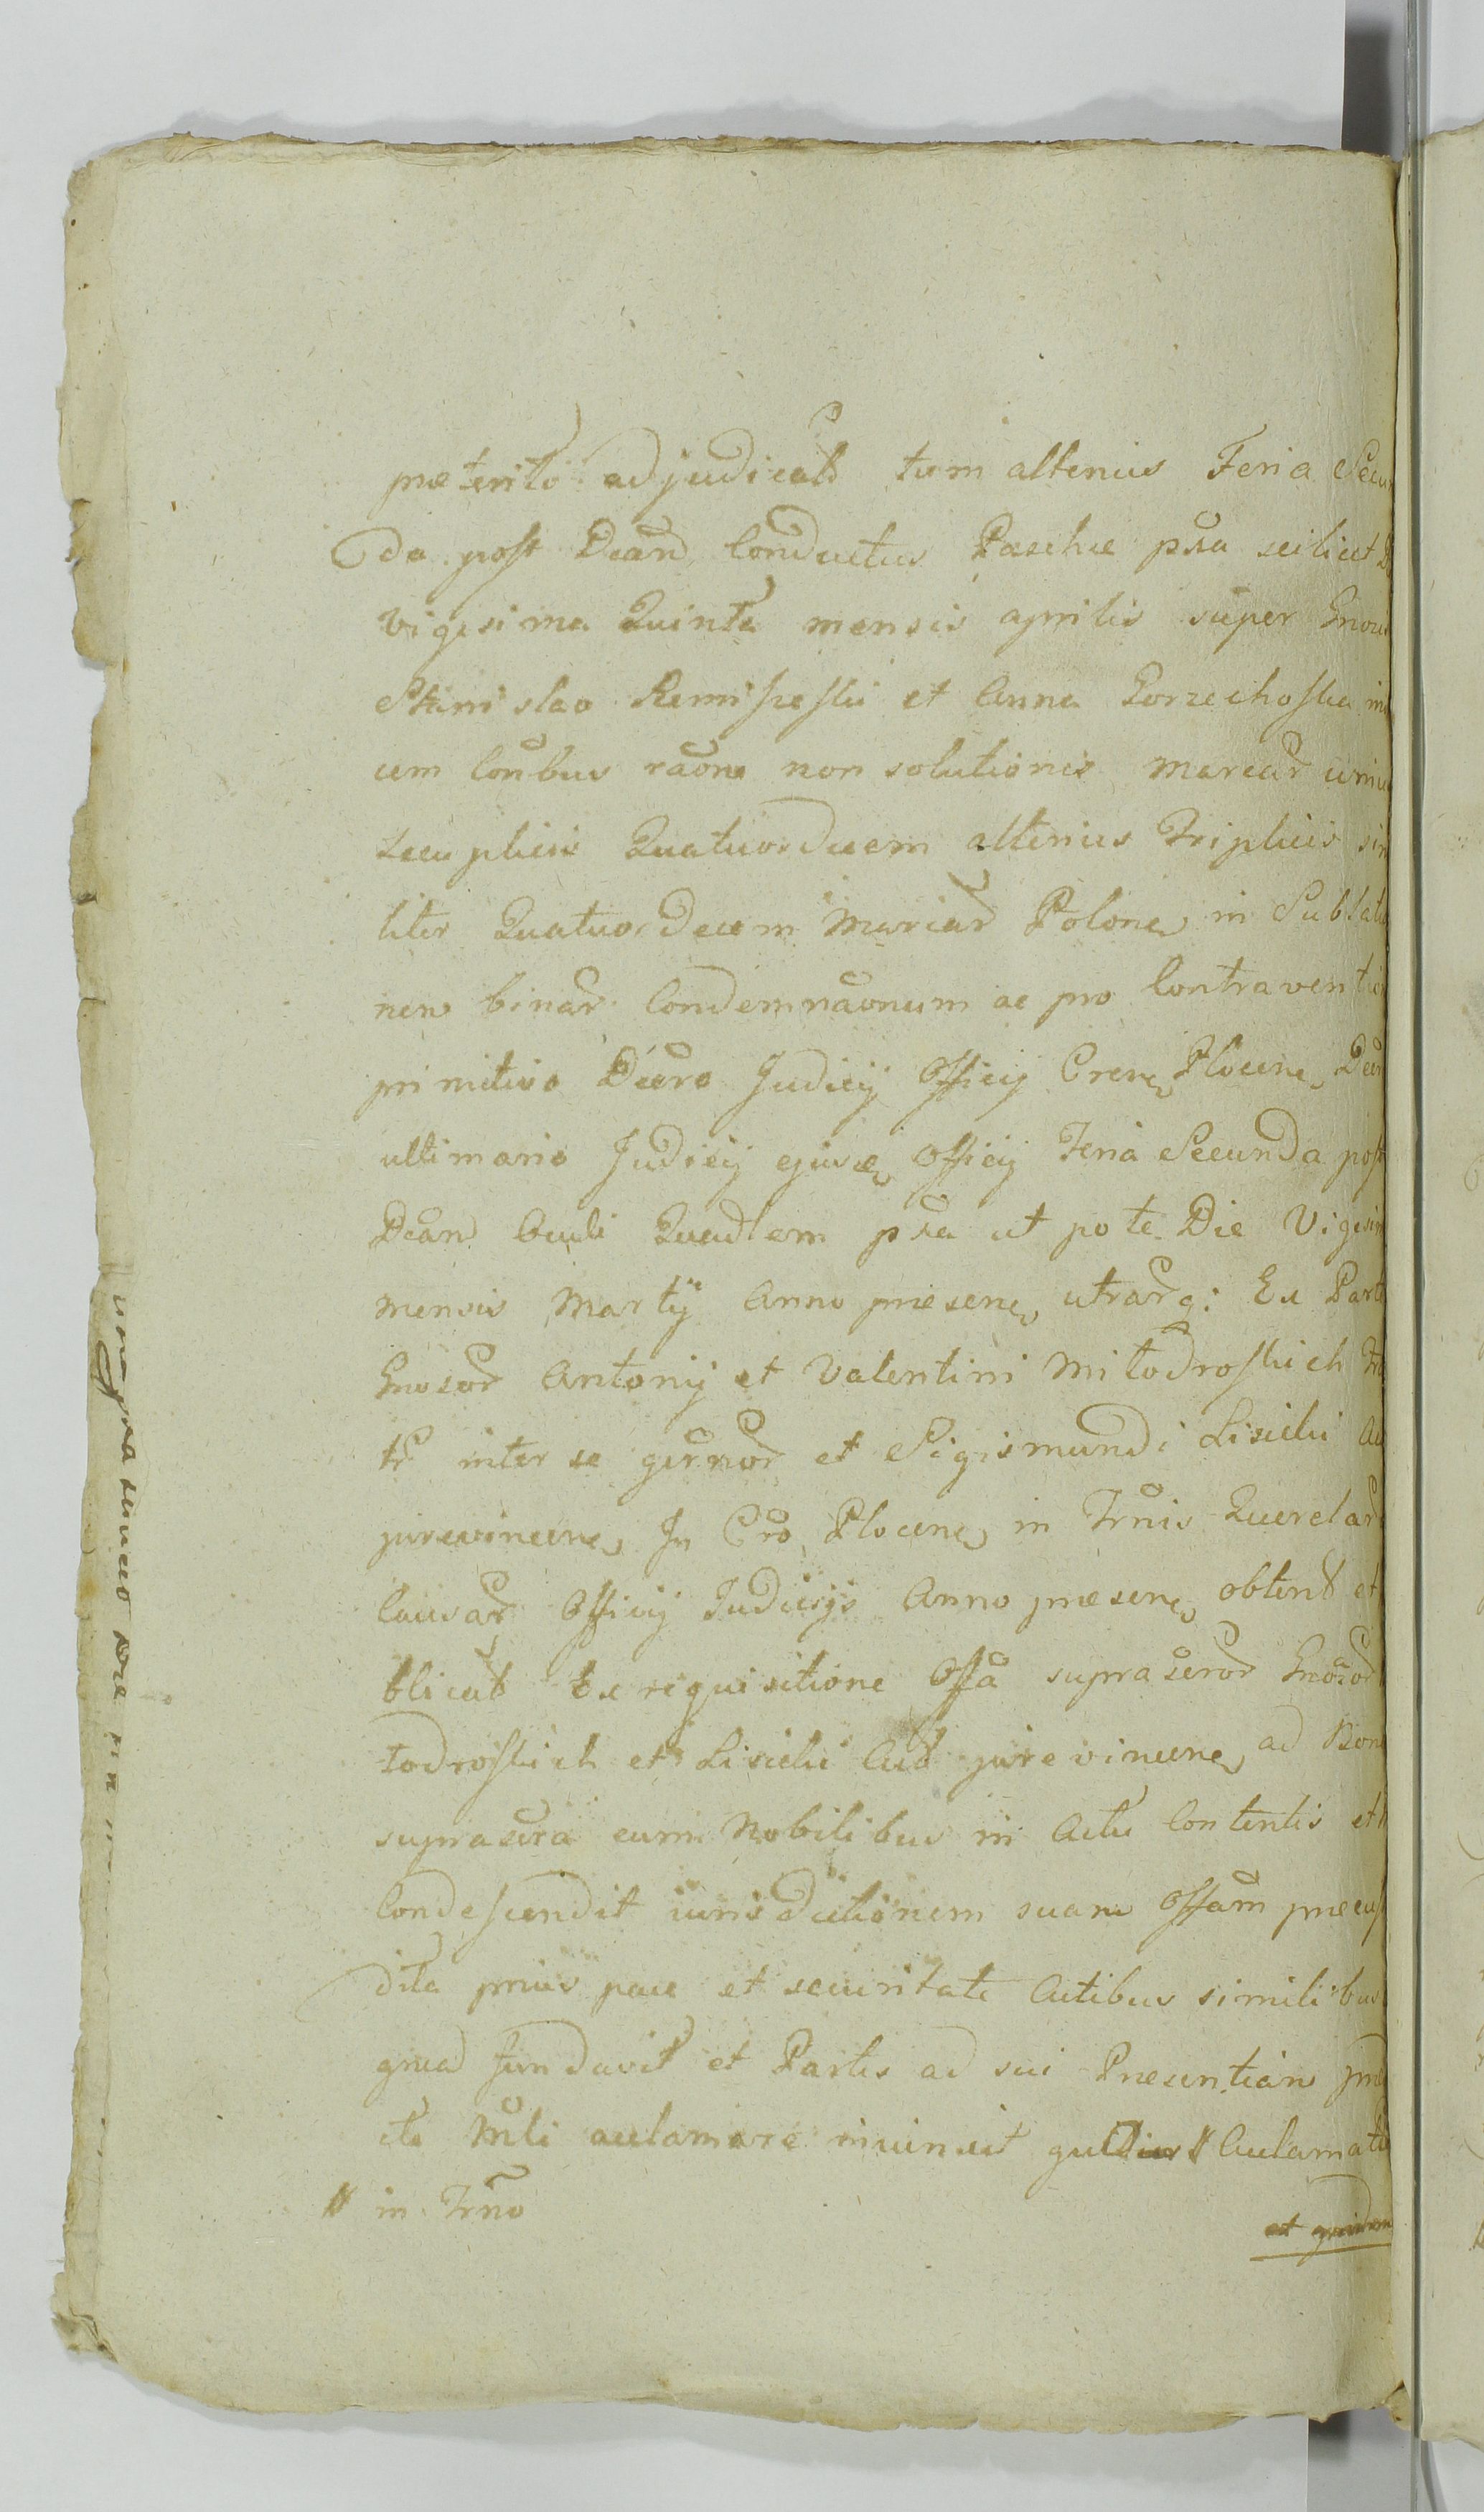 præterito adjudicat tum alterius Feria Secun
da post Dcam Conductus Paschæ pxa scilicet D
Vigesima Quinta mensis aprilis super Gnosis
Stanislao et Anna Gorzechoska in
cum Conbus raone non solutionis Marcar unius
Quatuordecem alterius Triplicis sim
liter Quatuordecem Marcar Polone in Sublatio
nem binar Condemnaonum ac pro Contraventio
primitivo Decro Judicy Officy Cren Plocen Decr
ultimario Judicy ejusd Officy Feria Secunda post
Dcam Oculi Quadlem pxa ut pote Die Vigesim
mensis Marty Anno præsen utrarq: Ex Parte
Gnosor Antony et Valentini Mitodroskich Fra
tr inter se germor et Sigismundi Lisicki Ac
jurevincen In Cro Plocen in Trnis Querelar
Causar Officy Judicys Anno præsen obtent et
blicat Ex requisitione Offa suprascror Gnosor
todroskich et Lisicki Act jurevincen ad Bona
suprascra cum Nobilibus in Actu Contentis et
Condescendit iurisdictionem suam Offam præcus
dita prius pace et securitate Actibus similibus
grua fundavit et Partes ad sui Præsentiam præ
Mli acclamare injunxit Acclamatis
# in Trno
et quidem